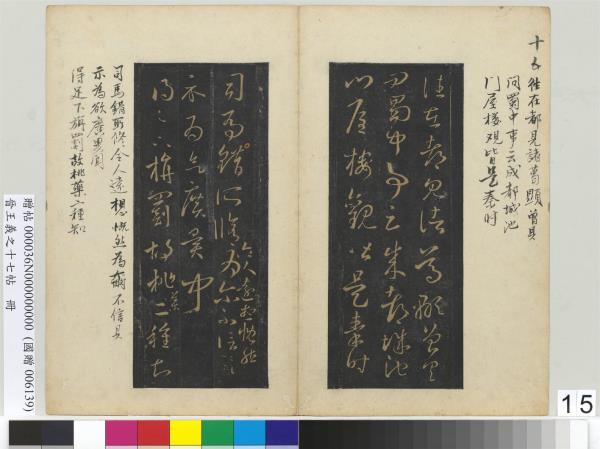 十五 往在都見諸葛顒曾具
問蜀中事云成都城池
門屋樓觀皆是秦時
往在都見諸葛顒曾具
問蜀中事云成都城池
門屋樓觀皆是秦時
司馬錯所脩令人遠想慨然為爾不信具
示為欲廣異聞
得足下旃罽胡桃藥二種知
司馬錯所修令人遠想慨然為爾不信具
示為欲廣異聞
得足下旃罽故桃藥二種知
贈帖 000036N000000000 (國贈 006139)
晉王羲之十七帖 冊
15